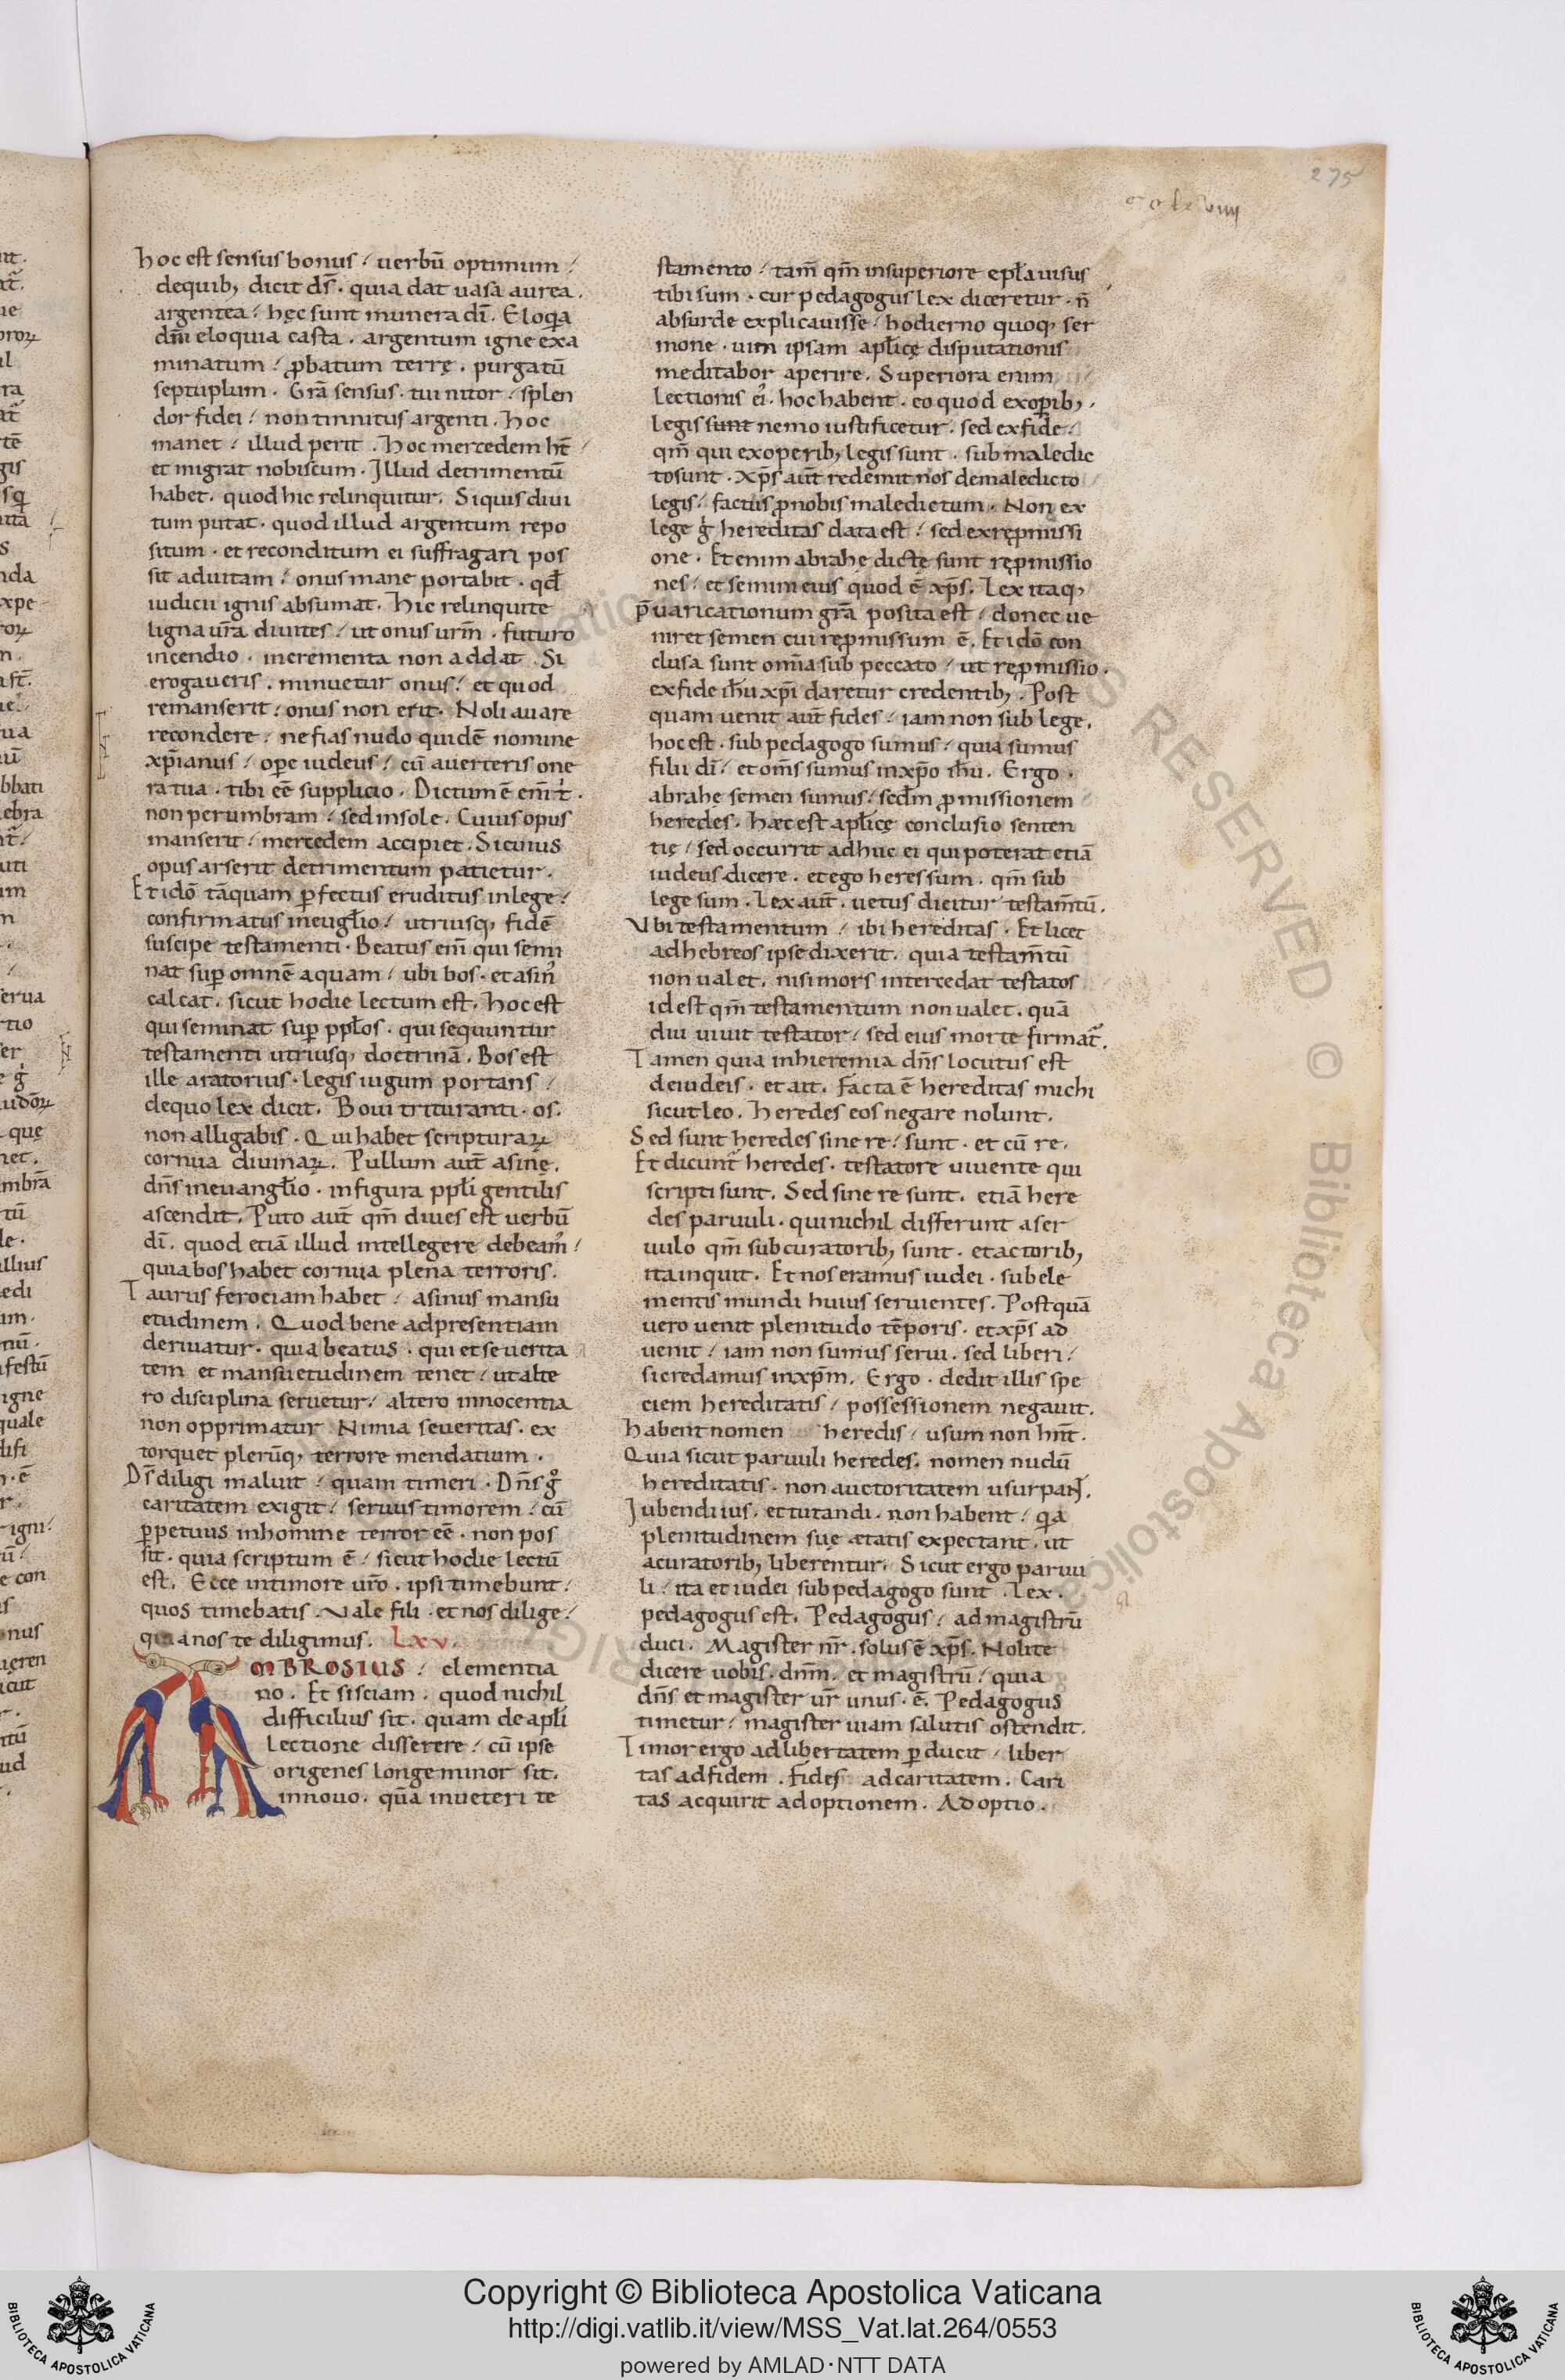 275
hoc est sensus bonus / uerbū optimum /
dequib; dicit ds̄ · quia dat uasa aurea .
argentea / hęc sunt munera dī . Eloq̄a
dn̄i eloquia casta . argentum igne exa
minatum / ꝓbatum terrę . purgatū
septuplum . Grā sensus . tui nitor / splen
dor fidei / non tinnitus argenti . hoc
manet / illud perit . hoc mercedem ht̄ /
et migrat nobiscum . Illud detrimentū
habet . quod hic relinquitur . Siquis diui
tum putat . quod illud argentum repo
situm . et reconditum ei suffragari pos
sit aduitam / onus mane portabit . qd̄
iudicii ignis absumat . hic relinquite
ligna ur̄a diuites / ut onus urm̄ . futuro
incendio . incrementa non addat . Si
erogaueris . minuetur onus / et quod
remanserit / onus non erit . Noli auare
recondere / ne fias nudo quidē nomine
xp̄ianus / ope iudeus / cū auerteris one
ra tua . tibi eē supplicio . Dictum ē em̄ t̄ .
non perumbram / sed insole . Cuius opus
manserit / mercedem accipiet . Si cuius
opus arserit detrimentum patietur .
Et idō tāquam ꝑfectus eruditus inlege /
confirmatus ineugl̄io / utriusq; fidē
suscipe testamenti . Beatus em̄ qui semi
nat suꝑ omnē aquam / ubi bos . et asin᾽
calcat . sicut hodie lectum est . hoc est
qui seminat suꝑ ppl̄os . qui sequuntur
testamenti utriusq; doctrinā . Bos est
ille aratorius . legis iugum portans /
dequo lex dicit . Boui trituranti . os .
non alligabis . Qui habet scripturaꝝ
cornua diuinaꝝ . Pullum aut̄ asinę .
dn̄s ineuangl̄io . infigura ppl̄i gentilis
ascendit . Puto aut̄ qm̄ diues est uerbū
dī . quod etiā illud intellegere debeam᾽ /
quia bos habet cornua plena terroris .
Taurus ferociam habet / asinus mansu
etudinem . Quod bene adpresentiam
deriuatur . quia beatus . qui et seuerita
tem et mansuetudinem tenet / ut alte
ro disciplina seruetur / altero innocentia
non opprimatur Nimia seueritas . ex
torquet plerūq; terrore mendatium .
Ds̄ diligi maluit / quam timeri . Dn̄s gͦ
caritatem exigit / seruus timorem / cū
ꝑpetuus inhomine terror eē . non pos
sit . quia scriptum ē / sicut hodie lectū
est . Ecce intimore ur̄o . ipsi timebunt /
quos timebatis . Vale fili . et nos dilige /
quia nos te diligimus . Lxv .
AMBROSIUS / clementia
no . Et si sciam . quod nichil
difficilius sit . quam de apl̄i
lectione disserere / cū ipse
origenes longe minor sit .
innouo . quā inueteri te
stamento / tam̄ qm̄ insuperiore epl̄a uisus
tibi sum . cur pedagogus lex diceretur . n̄
absurde explicauisse / hodierno quoq; ser
mone . uim ipsam apl̄icę disputationis
meditabor aperire . Superiora enim
lectionis ei᾽ . hoc habent . eo quod exoꝑib; .
legis sunt nemo iustificetur . sed exfide /
qm̄ qui exoperib; legis sunt . sub maledic
to sunt . xp̄s aut̄ redemit nos demaledicto
legis / factus ꝓnobis maledictum . Non ex
lege ġ hereditas data est / sed exreꝓmissi
one . Et enim abrahe dictę sunt reꝓmissio
nes / et semini eius quod ē xp̄s . Lex itaq;
p̄uaricationum grā posita est / donec ue
niret semen cui reꝓmissum ē . Et idō con
clusa sunt omīa sub peccato / ut reꝓmissio .
exfide ih̄u xp̄i daretur credentib; . Post
quam uenit aut̄ fides / iam non sub lege .
hoc est . sub pedagogo sumus / quia sumus
filii dī / et om̄s sumus inxp̄o ih̄u . Ergo .
abrahe semen sumus / sedm̄ ꝓmissionem
heredes . hæc est apl̄icę conclusio senten
tię / sed occurrit adhuc ei qui poterat etiā
iudeus dicere . et ego heres sum . qm̄ sub
lege sum . Lex aut̄ . uetus dicitur testam̄tū .
Vbi testamentum / ibi hereditas . Et licet
adhebreos ipse dixerit . quia testam̄tū
non ualet . nisi mors intercedat testatos
id est qm̄ testamentum non ualet . quā
diu uiuit testator / sed eius morte firmat᷑ .
Tamen quia inhieremia dn̄s locutus est
deiudeis . et ait . facta ē hereditas michi
sicut leo . heredes eos negare nolunt .
Sed sunt heredes sine re / sunt . et cū re .
Et dicunt᷑ heredes . testatore uiuente qui
scripti sunt . Sed sine re sunt . etiā here
des paruuli . qui nichil differunt a ser
uulo qm̄ sub curatorib; sunt . et actorib;
ita inquit . Et nos eramus iudei . sub ele
mentis mundi huius seruientes . Postquā
uero uenit plenitudo tēporis . et xp̄s ad
uenit / iam non sumus serui . sed liberi /
si credamus inxp̄m . Ergo . dedit illis spe
ciem hereditatis / possessionem negauit .
habent nomen heredis / usum non hn̄t .
Quia sicut paruuli heredes . nomen nudū
hereditatis . non auctoritatem usurpant᷑ .
Iubendi ius . et tutandi . non habent / q̄a
plenitudinem suę ætatis expectant . ut
acuratorib; liberentur . Sicut ergo paruu
li / ita et iudei sub pedagogo sunt . Lex .
pedagogus est . Pedagogus / ad magistrū
duci . Magister nr̄ . solus ē xp̄s . Nolite
dicere uobis . dnm̄ . et magistrū / quia
dn̄s et magister ur̄ unus . ē . Pedagogus
timetur / magister uiam salutis ostendit .
Timor ergo ad libertatem ꝑducit / liber
tas ad fidem . fides ad caritatem . Cari
tas acquirit adoptionem . Adoptio .
Copyright © Biblioteca Apostolica Vaticana
http://digi.vatlib.it/view/MSS_Vat.lat.264/0553
powered by AMLAD · NTT DATA
BIBLIOTECA APOSTOLICA VATICANA
BIBLIOTECA APOSTOLICA VATICANA